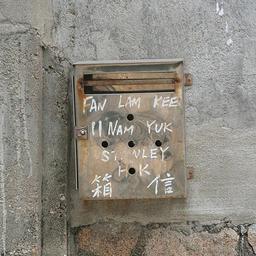 FAN LAM KEE
11 NAM YUK
STANLEY
H.K
箱 信